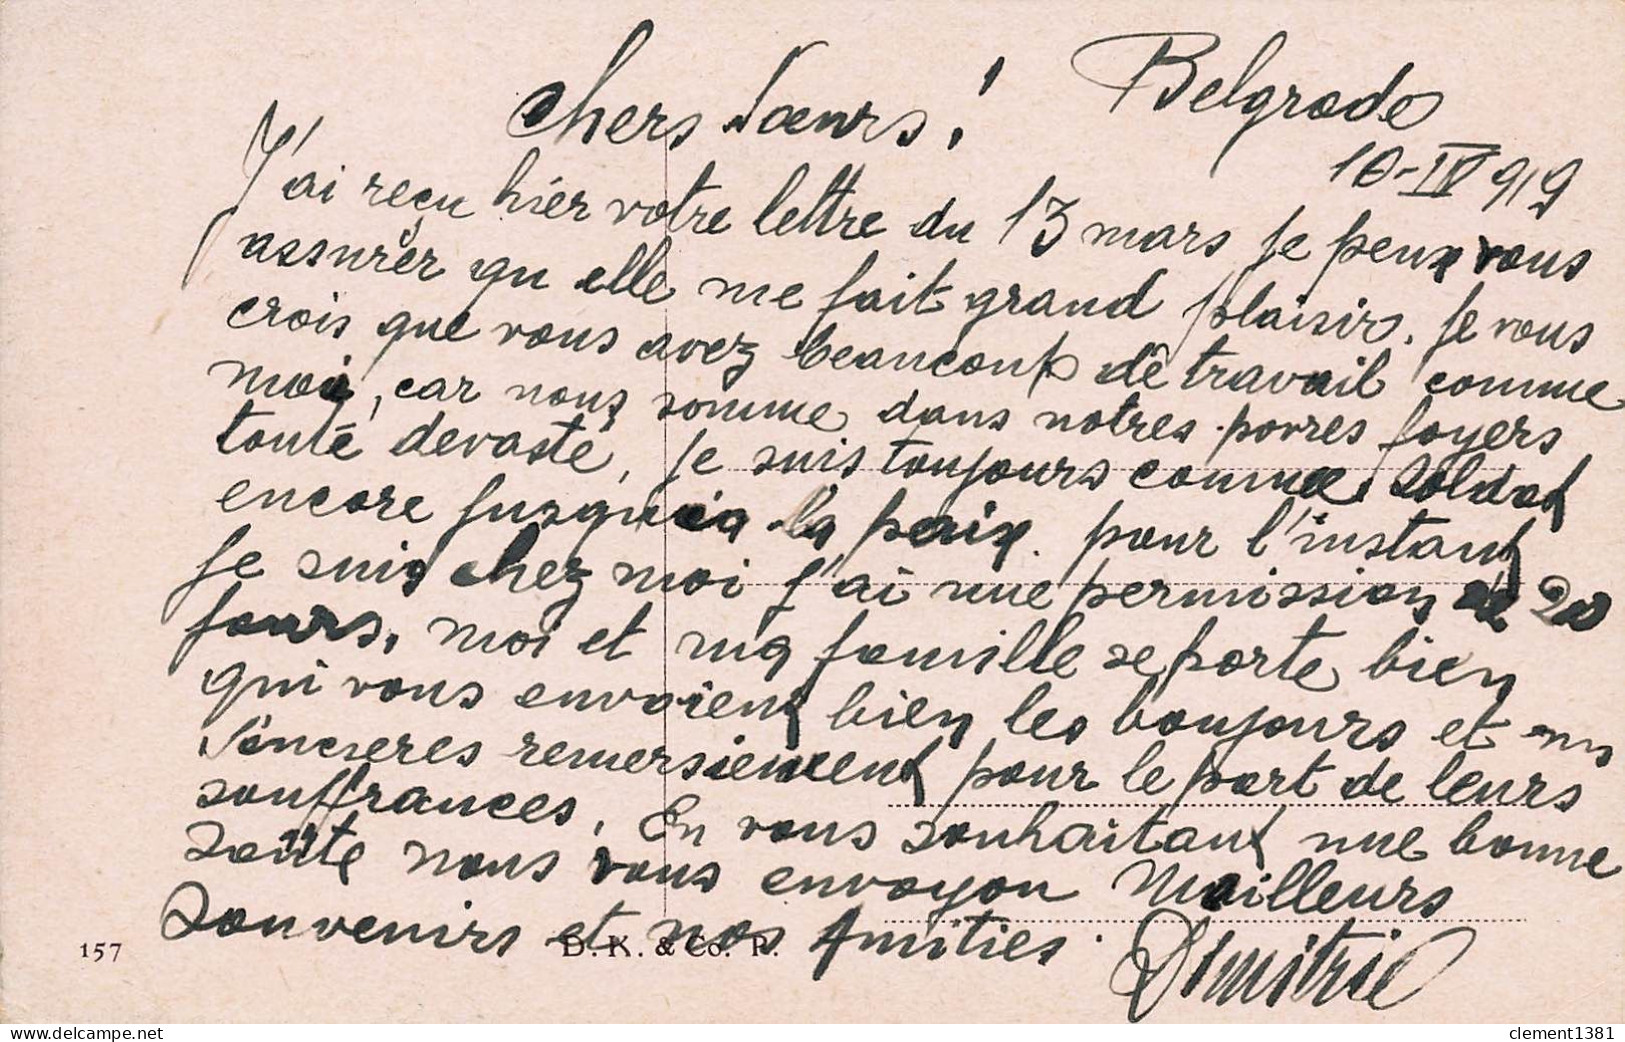 Belgrade
10-IV 919
Chers Sœurs!
J'ai reçu hier votre lettre du 13 mars je peux vous
assurér qu elle me fait grand plaisir. Je vous
crois que vous avez beaucoup de travail comme
moi, car nous somme dans notres povres foyers
touté devasté, je suis toujours comme soldat
encore jusqu'a la paix. pour l'instant
je suis chez moi j'ai une permission de 20
jours. moi et ma famille se porte bien
qui vous envoient bien les boujours et nos
Sancieres remersiement pour le part de leurs
souffrances. En vous souhaitant une bonne
santé nous vous envoyon Meilleurs
souvenirs et nos Amities.
Dimitrie
157
D. K. & Co. P.
clement1381